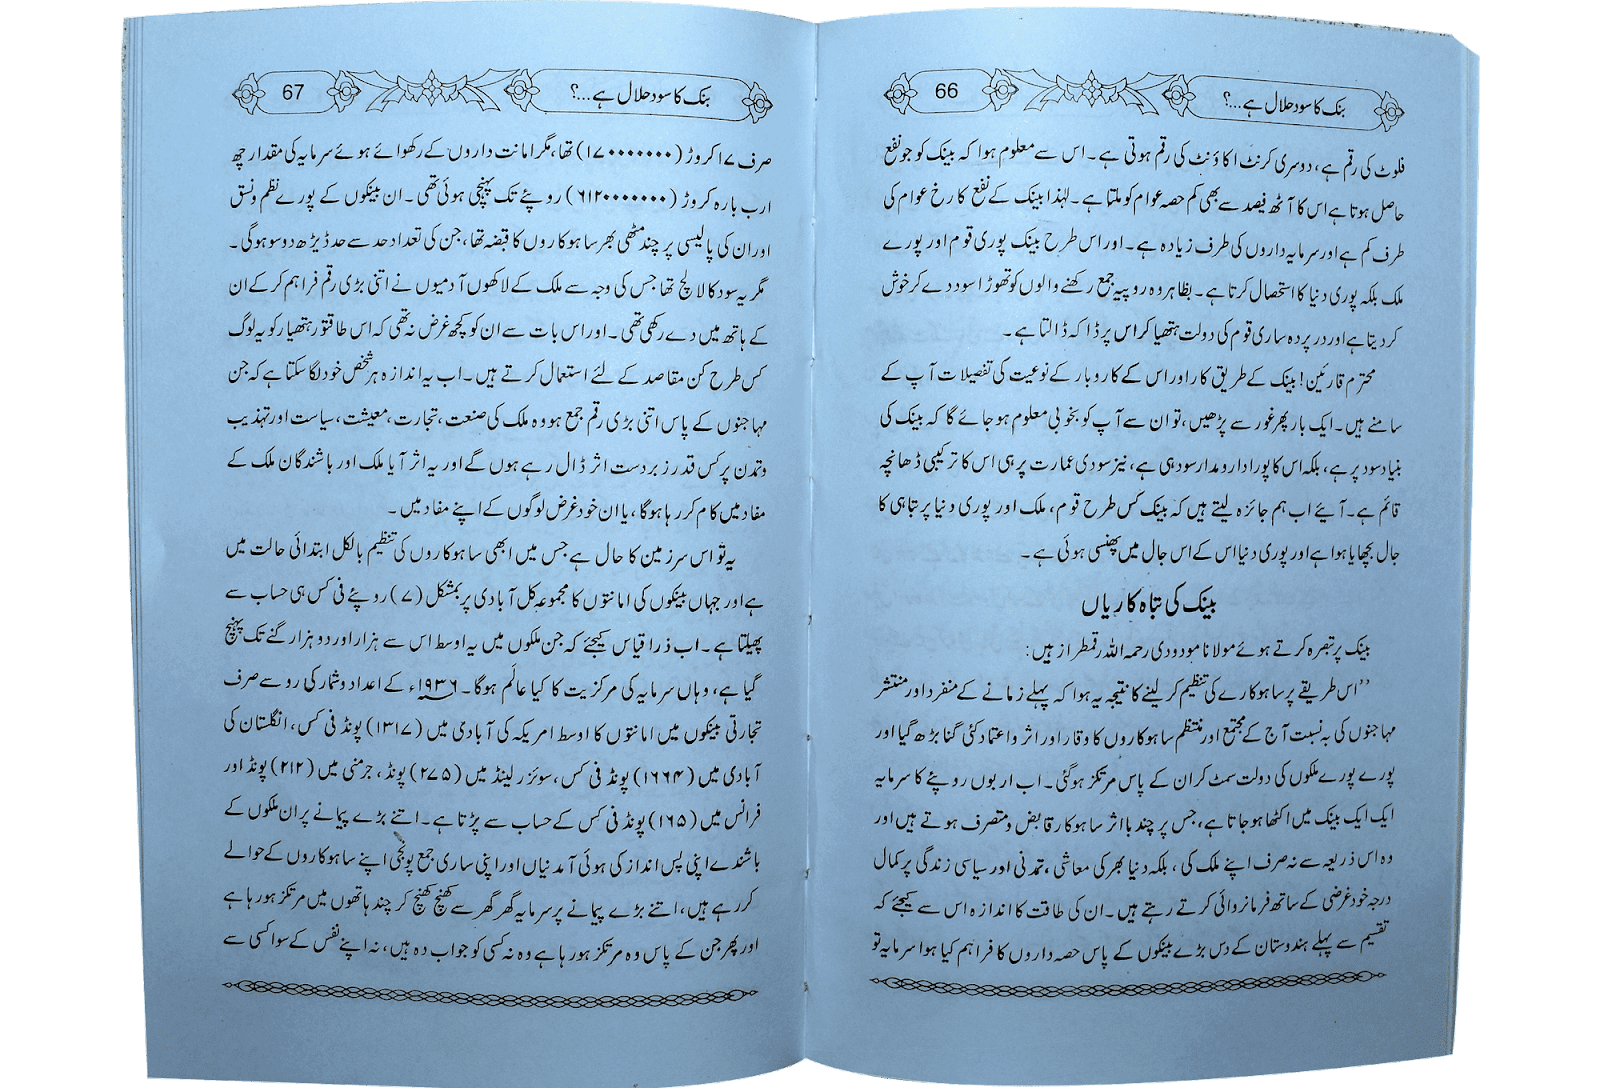 66
بنک کا سود حلال ہے...؟
فلوٹ کی رقم ہے، دوسری کرنٹ اکاؤنٹ کی رقم ہوتی ہے۔ اس سے معلوم ہوا کہ بینک کو جو نفع
حاصل ہوتا ہے اس کا آٹھ فیصد سے بھی کم حصہ عوام کو ملتا ہے۔ لہٰذا بینک کے نفع کا رخ عوام کی
طرف کم ہے اور سرمایہ داروں کی طرف زیادہ ہے۔ اور اس طرح بینک پوری قوم اور پورے
ملک بلکہ پوری دنیا کا استحصال کرتا ہے۔ بظاہر وہ روپیہ جمع رکھنے والوں کو تھوڑا سود دے کر خوش
کر دیتا ہے اور در پردہ ساری قوم کی دولت ہتھیا کر اس پر ڈاکہ ڈالتا ہے۔
محترم قارئین! بینک کے طریق کار اور اس کے کاروبار کے نوعیت کی تفصیلات آپ کے
سامنے ہیں۔ ایک بار پھر غور سے پڑھیں، تو ان سے آپ کو بخوبی معلوم ہو جائے گا کہ بینک کی
بنیاد سود پر ہے، بلکہ اس کا پورا دارومدار سود ہی ہے، نیز سودی عمارت پر ہی اس کا ترکیبی ڈھانچہ
قائم ہے۔ آیئے اب ہم جائزہ لیتے ہیں کہ بینک کس طرح قوم، ملک اور پوری دنیا پر تباہی کا
جال بچھایا ہوا ہے اور پوری دنیا اس کے اس جال میں پھنسی ہوئی ہے۔
بینک کی تباہ کاریاں
بینک پر تبصرہ کرتے ہوئے مولانا مودودی رحمہ اللہ رقمطراز ہیں:
’’اس طریقے پر ساہوکارے کی تنظیم کر لینے کا نتیجہ یہ ہوا کہ پہلے زمانے کے منفرد اور منتشر
مہاجنوں کی بہ نسبت آج کے مجتمع اور منتظم ساہوکاروں کا وقار اور اثر و اعتماد کئی گنا بڑھ گیا اور
پورے پورے ملکوں کی دولت سمٹ کر ان کے پاس مرتکز ہوگئی۔ اب اربوں روپئے کا سرمایہ
ایک ایک بینک میں اکٹھا ہو جاتا ہے، جس پر چند بااثر ساہوکار قابض و متصرف ہوتے ہیں اور
وہ اس ذریعہ سے نہ صرف اپنے ملک کی، بلکہ دنیا بھر کی معاشی، تمدنی اور سیاسی زندگی پر کمال
درجہ خود غرضی کے ساتھ فرمانروائی کرتے رہتے ہیں۔ ان کی طاقت کا اندازہ اس سے کیجئے کہ
تقسیم سے پہلے ہندوستان کے دس بڑے بینکوں کے پاس حصہ داروں کا فراہم کیا ہوا سرمایہ تو
67
بنک کا سود حلال ہے...؟
صرف ۱۷ کروڑ (۱۷۰۰۰۰۰۰۰) تھا، مگر امانت داروں کے رکھوائے ہوئے سرمایہ کی مقدار چھ
ارب بارہ کروڑ (۶۱۲۰۰۰۰۰۰۰) روپئے تک پہنچی ہوئی تھی۔ ان بینکوں کے پورے نظم و نسق
اور ان کی پالیسی پر چند مٹھی بھر ساہوکاروں کا قبضہ تھا، جن کی تعداد حد سے حد ڈیڑھ دو سو ہوگی۔
مگر یہ سود کا لالچ تھا جس کی وجہ سے ملک کے لاکھوں آدمیوں نے اتنی بڑی رقم فراہم کر کے ان
کے ہاتھ میں دے رکھی تھی۔ اور اس بات سے ان کو کچھ غرض نہ تھی کہ اس طاقتور ہتھیار کو یہ لوگ
کس طرح کن مقاصد کے لئے استعمال کرتے ہیں۔ اب یہ اندازہ ہر شخص خود لگا سکتا ہے کہ جن
مہاجنوں کے پاس اتنی بڑی رقم جمع ہو وہ ملک کی صنعت، تجارت، معیشت، سیاست اور تہذیب
و تمدن پر کس قدر زبردست اثر ڈال رہے ہوں گے اور یہ اثر آیا ملک اور باشندگان ملک کے
مفاد میں کام کر رہا ہوگا، یا ان خود غرض لوگوں کے اپنے مفاد میں۔
یہ تو اس سرزمین کا حال ہے جس میں ابھی ساہوکاروں کی تنظیم بالکل ابتدائی حالت میں
ہے اور جہاں بینکوں کی امانتوں کا مجموعہ کل آبادی پر بمشکل (۷) روپئے فی کس ہی حساب سے
پھیلتا ہے۔ اب ذرا قیاس کیجئے کہ جن ملکوں میں یہ اوسط اس سے ہزار اور دو ہزار گنے تک پہنچ
گیا ہے، وہاں سرمایہ کی مرکزیت کا کیا عالم ہوگا۔ ۱۹۳۶ء کے اعداد و شمار کی رو سے صرف
تجارتی بینکوں میں امانتوں کا اوسط امریکہ کی آبادی میں (۱۳۱۷) پونڈ فی کس، انگلستان کی
آبادی میں (۱۶۶۴) پونڈ فی کس، سوئزرلینڈ میں (۲۷۵) پونڈ، جرمنی میں (۲۱۲) پونڈ اور
فرانس میں (۱۶۵) پونڈ فی کس کے حساب سے پڑتا ہے۔ اتنے بڑے پیمانے پر ان ملکوں کے
باشندے اپنی پس انداز کی ہوئی آمدنیاں اور اپنی ساری جمع پونجی اپنے ساہوکاروں کے حوالے
کر رہے ہیں، اتنے بڑے پیمانے پر سرمایہ گھر گھر سے کھنچ کھنچ کر چند ہاتھوں میں مرتکز ہو رہا ہے
اور پھر جن کے پاس وہ مرتکز ہو رہا ہے وہ نہ کسی کو جواب دہ ہیں، نہ اپنے نفس کے سوا کسی سے